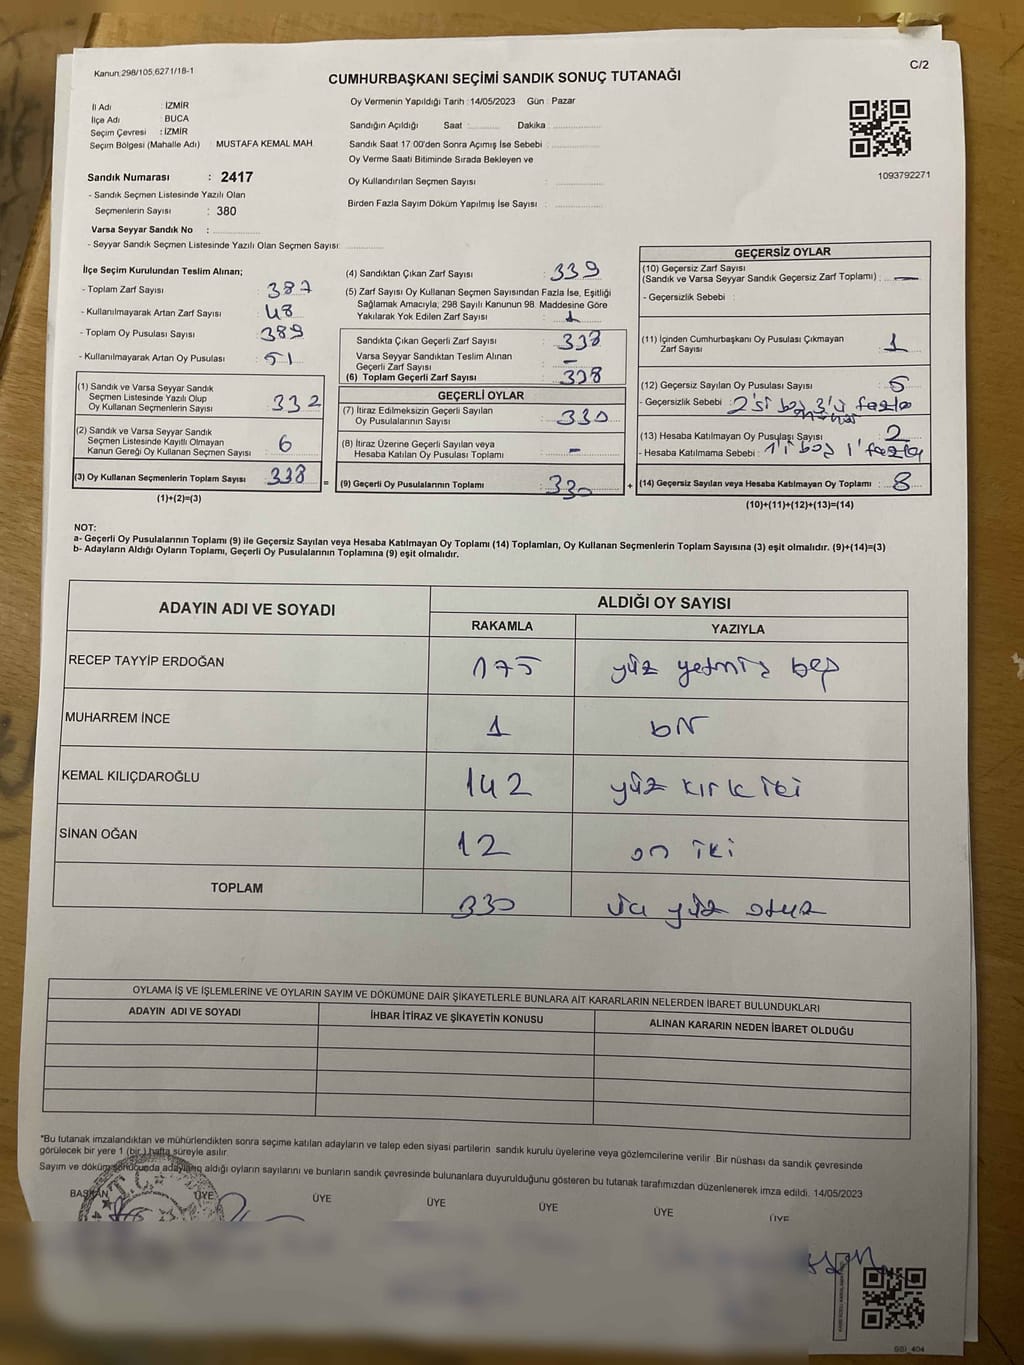 Kanun;298/105,6271/18-1
C/2
CUMHURBAŞKANI SEÇİMİ SANDIK SONUÇ TUTANAĞI
İl Adı : İZMİR
İlçe Adı : BUCA
Seçim Çevresi : İZMİR
Seçim Bölgesi (Mahalle Adı) MUSTAFA KEMAL MAH
Sandık Numarası : 2417
- Sandık Seçmen Listesinde Yazılı Olan
Seçmenlerin Sayısı : 380
Varsa Seyyar Sandık No :
- Seyyar Sandık Seçmen Listesinde Yazılı Olan Seçmen Sayısı:
Oy Vermenin Yapıldığı Tarih : 14/05/2023 Gün : Pazar
Sandığın Açıldığı Saat : Dakika :
Sandık Saat 17 00'den Sonra Açımış İse Sebebi :
Oy Verme Saati Bitiminde Sırada Bekleyen ve
Oy Kullandırılan Seçmen Sayısı :
Birden Fazla Sayım Döküm Yapılmış İse Sayısı :
1093792271
İlçe Seçim Kurulundan Teslim Alınan;
- Toplam Zarf Sayısı : 387
- Kullanılmayarak Artan Zarf Sayısı : 48
- Toplam Oy Pusulası Sayısı : 389
- Kullanılmayarak Artan Oy Pusulası : 51
(1) Sandık ve Varsa Seyyar Sandık
Seçmen Listesinde Yazılı Olup
Oy Kullanan Seçmenlerin Sayısı : 332
(2) Sandık ve Varsa Seyyar Sandık
Seçmen Listesinde Kayıtlı Olmayan
Kanun Gereği Oy Kullanan Seçmen Sayısı : 6
(3) Oy Kullanan Seçmenlerin Toplam Sayısı : 338
(1)+(2)=(3)
(4) Sandıktan Çıkan Zarf Sayısı : 339
(5) Zarf Sayısı Oy Kullanan Seçmen Sayısından Fazla İse, Eşitliği
Sağlamak Amacıyla, 298 Sayılı Kanunun 98. Maddesine Göre
Yakılarak Yok Edilen Zarf Sayısı : 1
Sandıkta Çıkan Geçerli Zarf Sayısı : 338
Varsa Seyyar Sandıktan Teslim Alınan
Geçerli Zarf Sayısı : -
(6) Toplam Geçerli Zarf Sayısı : 338
GEÇERLİ OYLAR
(7) İtiraz Edilmeksizin Geçerli Sayılan
Oy Pusulasının Sayısı : 330
(8) İtiraz Üzerine Geçerli Sayılan veya
Hesaba Katılan Oy Pusulası Toplamı : -
= (9) Geçerli Oy Pusulalarının Toplamı : 330
GEÇERSİZ OYLAR
(10) Geçersiz Zarf Sayısı
(Sandık ve Varsa Seyyar Sandık Geçersiz Zarf Toplamı) : -
- Geçersizlik Sebebi :
(11) İçinden Cumhurbaşkanı Oy Pusulası Çıkmayan
Zarf Sayısı : 1
(12) Geçersiz Sayılan Oy Pusulası Sayısı : 5
- Geçersizlik Sebebi : 2'si boş 3'ü fazla
(13) Hesaba Katılmayan Oy Pusulası Sayısı : 2
- Hesaba Katılmama Sebebi : 1'i boş 1'fazla
+ (14) Geçersiz Sayılan veya Hesaba Katılmayan Oy Toplamı : 8
(10)+(11)+(12)+(13)=(14)
NOT:
a- Geçerli Oy Pusulalarının Toplamı (9) ile Geçersiz Sayılan veya Hesaba Katılmayan Oy Toplamı (14) Toplamları, Oy Kullanan Seçmenlerin Toplam Sayısına (3) eşit olmalıdır. (9)+(14)=(3)
b- Adayların Aldığı Oyların Toplamı, Geçerli Oy Pusulalarının Toplamına (9) eşit olmalıdır.
ADAYIN ADI VE SOYADI ALDIĞI OY SAYISI
RAKAMLA YAZIYLA
RECEP TAYYİP ERDOĞAN 175 yüz yetmiş beş
MUHARREM İNCE 1 bir
KEMAL KILIÇDAROĞLU 142 yüz kırk iki
SİNAN OĞAN 12 on iki
TOPLAM 330 üç yüz otuz
OYLAMA İŞ VE İŞLEMLERİNE VE OYLARIN SAYIM VE DÖKÜMÜNE DAİR ŞİKAYETLERLE BUNLARA AİT KARARLARIN NELERDEN İBARET BULUNDUKLARI
ADAYIN ADI VE SOYADI İHBAR İTİRAZ VE ŞİKAYETİN KONUSU ALINAN KARARIN NEDEN İBARET OLDUĞU
*Bu tutanak imzalandıktan ve mühürlendikten sonra seçime katılan adayların ve talep eden siyasi partilerin sandık kurulu üyelerine veya gözlemcilerine verilir .Bir nüshası da sandık çevresinde
görülecek bir yere 1 (bir ) hafta süreyle asılır.
Sayım ve döküm sonucunda adayların aldığı oyların sayılarını ve bunların sandık çevresinde bulunanlara duyurulduğunu gösteren bu tutanak tarafımızdan düzenlenerek imza edildi. 14/05/2023
BAŞKAN ÜYE ÜYE ÜYE ÜYE ÜYE ÜYE
SBI_404